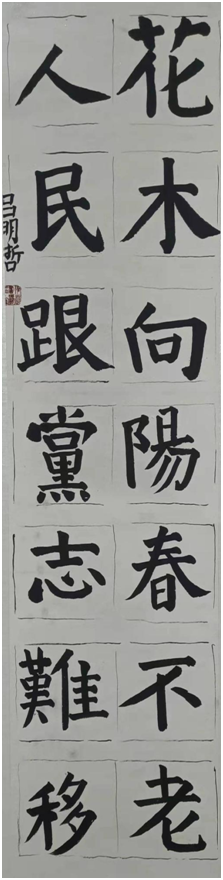 花木向陽春不老
人民跟黨志難移
吕明哲